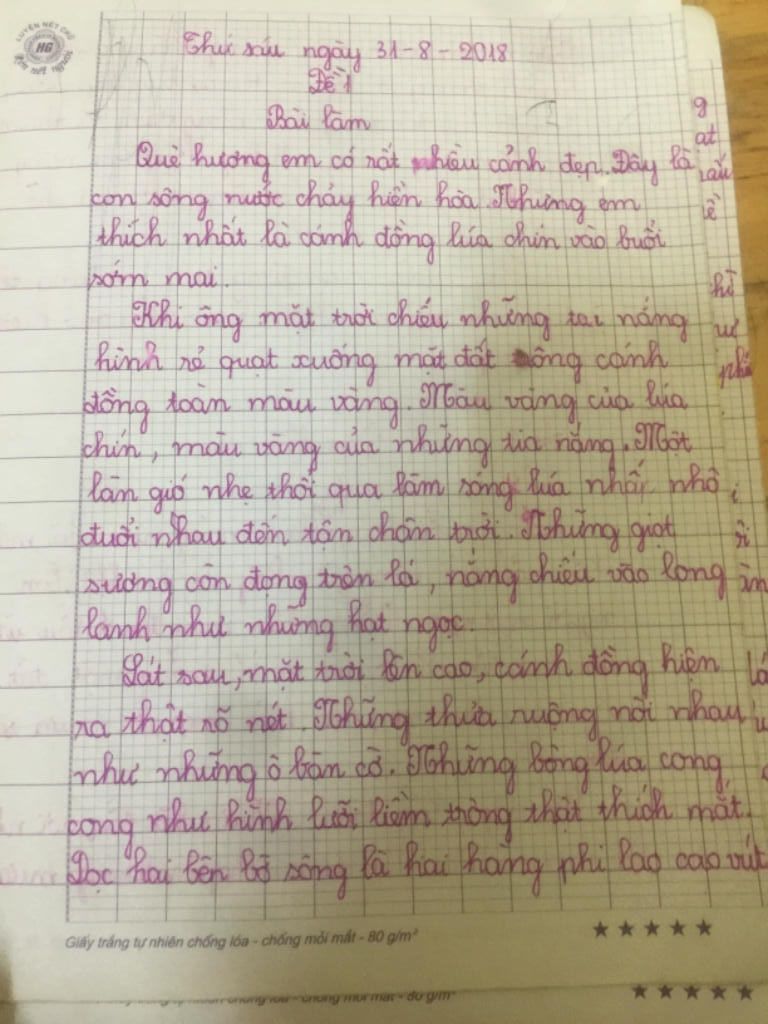 LUYỆN NÉT CHỮ
HG
RÈN NẾT NGƯỜI
Thứ sáu ngày 31-8-2018
Đề 1
Bài làm
Quê hương em có rất nhiều cảnh đẹp. Đây là
con sông nước chảy hiền hòa. Nhưng em
thích nhất là cánh đồng lúa chín vào buổi
sớm mai.
Khi ông mặt trời chiếu những tia nắng
hình rẻ quạt xuống mặt đất ông cánh
đồng toàn màu vàng. Màu vàng của lúa
chín, màu vàng của những tia nắng. Một
làn gió nhẹ thổi qua làm sóng lúa nhấp nhô
đuổi nhau đến tận chân trời. Những giọt
sương còn đọng trên lá, nắng chiếu vào long
lanh như những hạt ngọc.
Lát sau, mặt trời lên cao, cánh đồng hiện
ra thật rõ nét. Những thửa ruộng nối nhau
như những ô bàn cờ. Những bông lúa cong
cong như hình lưỡi liềm trông thật thích mắt.
Dọc hai bên bờ sông là hai hàng phi lao cao vút
Giấy trắng tự nhiên chống lóa - chống mỏi mắt - 80 g/m²